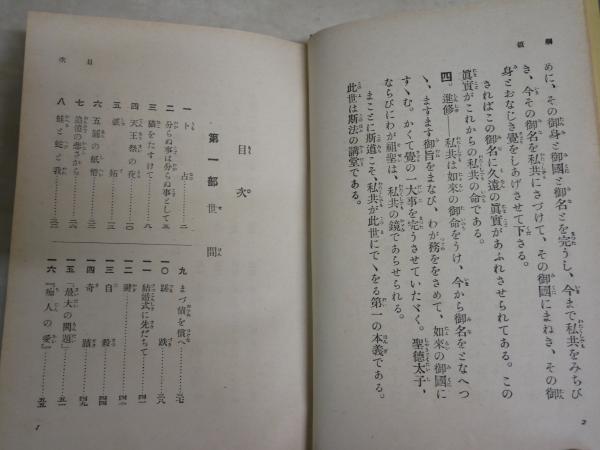 綱領
めに、その御身と御國と御名とを完うし、今まで私共をみちび
き、今その御名を私共にさづけて、その御國にまねき、その御
身とおなじき覺をしあげさせて下さる。
さればこの御名に久遠の眞實があふれさせられてある。この
眞實がこれからの私共の命である。
四。進修 私共は如來の御命をうけ、今から御名をとなへつ
ゝ、ますます御旨をまなび、わが務をさめて、如來の御國に
すゝむ。かくて覺の一大事を完うさせていたゞく。聖德太子、
ならびにわが祖聖は、私共の鏡であらせられる。
まことに斯道こそ、私共が此世にでゝをる第一の本義である。
此世は斯法の講堂である。
2
目次
目次
第一部 世間
一 卜占………二
二 分らぬ事は分らぬ事として………五
三 猫をたすけて………八
四 天王祭の夜………一〇
五 嫉妬………
六 五厘の紙僧………
七 追憶の悲さから………
八 蛙と蛇と我………
九 まづ債を償へ………三七
一〇 跋………
一一 結婚式に先だちて………四一
一二 謝………四三
一三 自殺………四四
一四 奇蹟………四九
一五 「最大の問題」………五一
一六 『痴人の愛』………五五
1